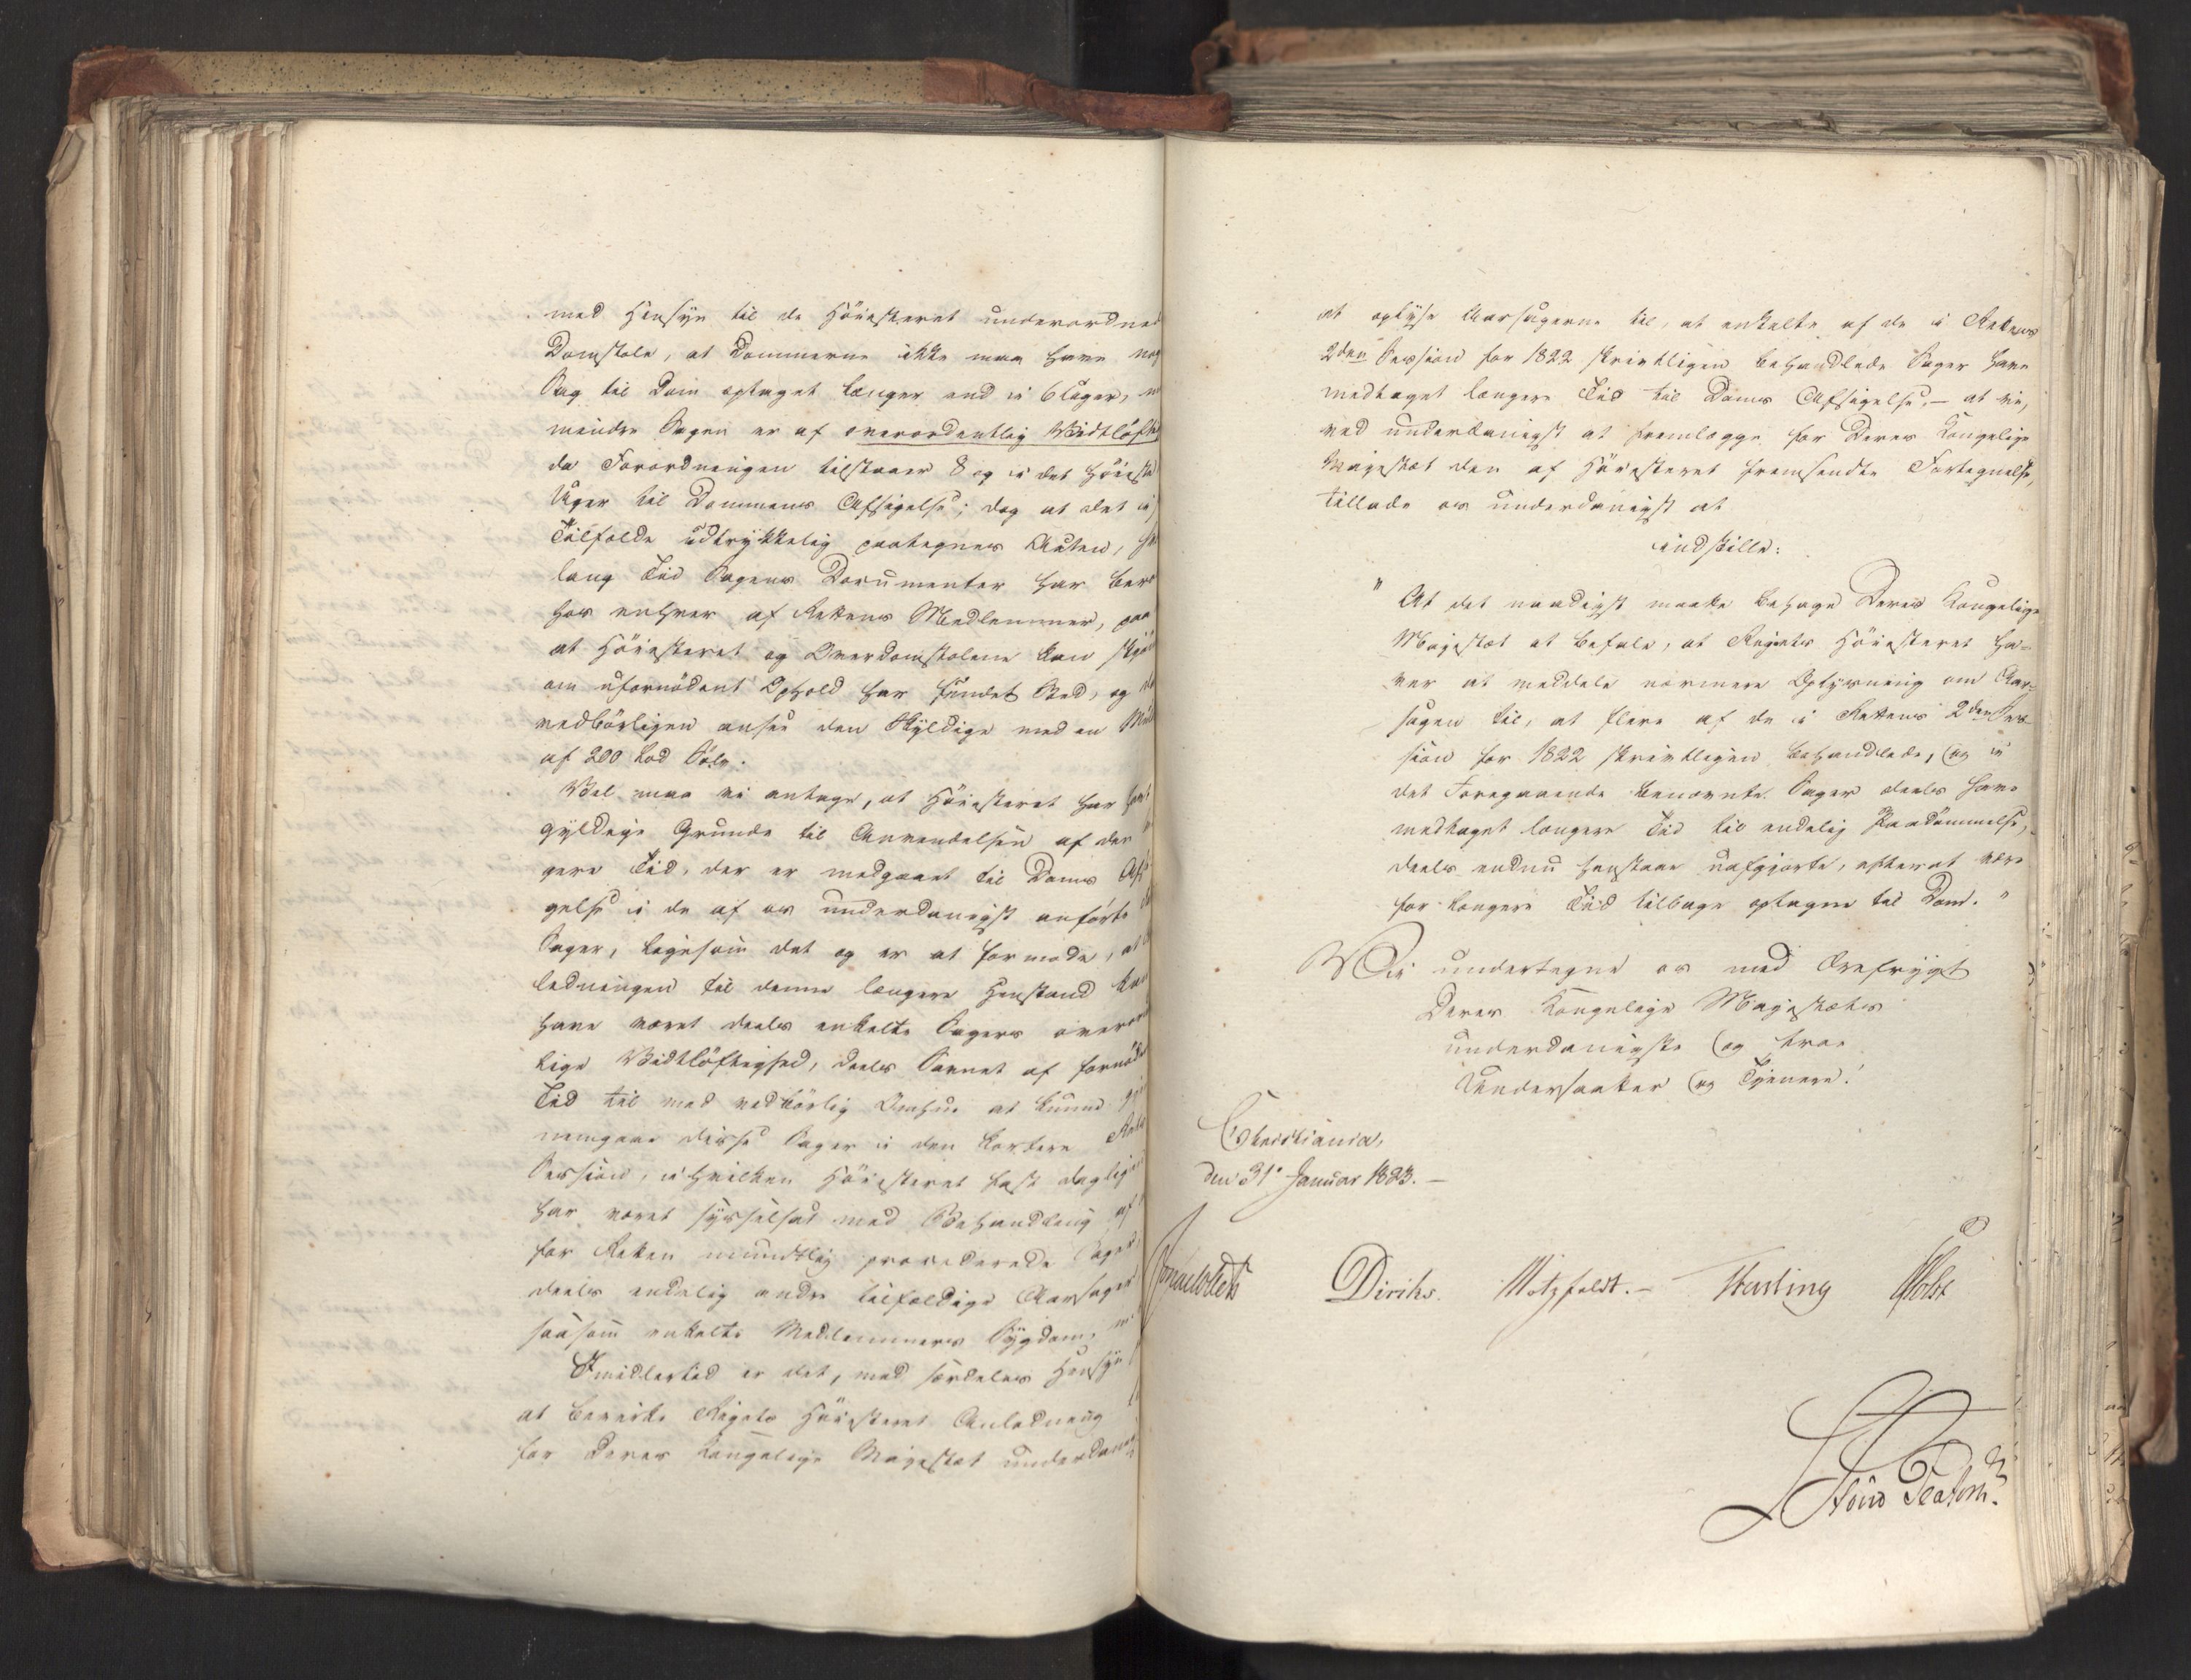 med Hensyn til de Höiesteret underordned
Domstole, at Dommerne ikke maa have nog
Sag til Dom optaget længer end i 6 Uger,
mindre Sagen er af overordentlig Vidtlöft
da Forordningen tilstaaer 8 og i det Höieste
Uger til Dommens Afsigelse; dog at det i
Tilfælde udtrykkelig paategnes Acten,
lang Tid Sagens Documenter har bero
hos enhver af Rettens Medlemmer, paa
at Höiesteret og Overdomstolene kan skjön
om ufornödent Ophold har fundet Sted, og
vedbörligen ansee den Skyldige med en Mul
af 200 Lod Sölv.
Vel maa vi antage, at Höiesteret har havt
gyldige Grunde til Anvendelsen af den
gere Tid, der er medgaaet til Doms Afsi
gelse i de af os underdanigst anförte
Sager, ligesom det og er at formode, at
ledningen til denne længere Henstand kan
have været deels enkelte Sagers overord
lige Vidtlöftighed, deels Savnet af fornöde
Tid til med vedbörlig Omhue at kunne gje
nemgaae disse Sager i den kortere Rets
Session, i hvilken Höiesteret fast daglig
har været sysselsat med Behandling af
for Retten mundtlig procederede Sager,
deels endelig andre tilfældige Aarsager
saasom enkelte Medlemmers Sygdom,
Imidlertid er det, med særdeles Hensyn
at bevirke Rigets Höiesteret Anledning
for Deres Kongelige Majestæt underdani
at oplyse Aarsagerne til, at enkelte af de i Rettens
2den Session for 1822 skriftligen behandlede Sager have
medtaget længere Tid til Doms Afsigelse, — at vi,
ved underdanigst at fremlægge for Deres Kongelige
Majestæt den af Höiesteret fremsendte Fortegnelse,
tillade os underdanigst at
indstille:
" At det naadigst maatte behage Deres Kongelige
Majestæt at befale, at Rigets Höiesteret ha=
ver at meddele nærmere Oplysning om Aar=
sagen til, at flere af de i Rettens 2den Ses
sion for 1822 skriftligen behandlede, og i
det Foregaaende benævnte Sager deels have
medtaget længere Tid til endelig Paadömmelse,
deels endnu henstaae uafgjorte, efterat være
for længere Tid tilbage optagne til Dom. "
Vi undertegne os med Ærefrygt
Deres Kongelige Majestæts
underdanigste og troe
Undersaatter og Tjenere!
Christiania,
den 31. Januar 1823. —
Sommerhielm Diriks. Motzfeldt. — Fasting Holst